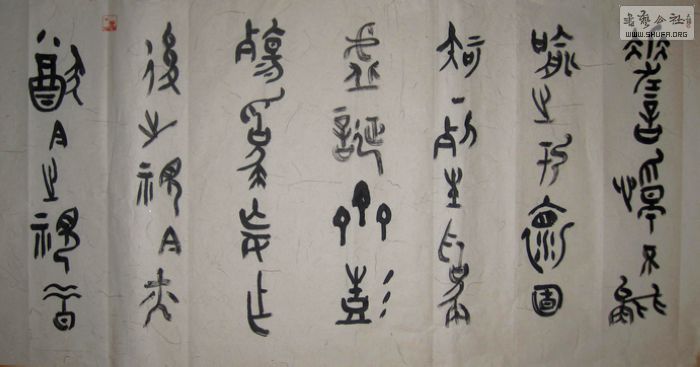 嗟悼不能
喻之於懷固
知一死生為
虛誕齊彭
殤為妄作
後之視今亦
猶今之視昔
書藝公社
WWW.SHUFA.ORG